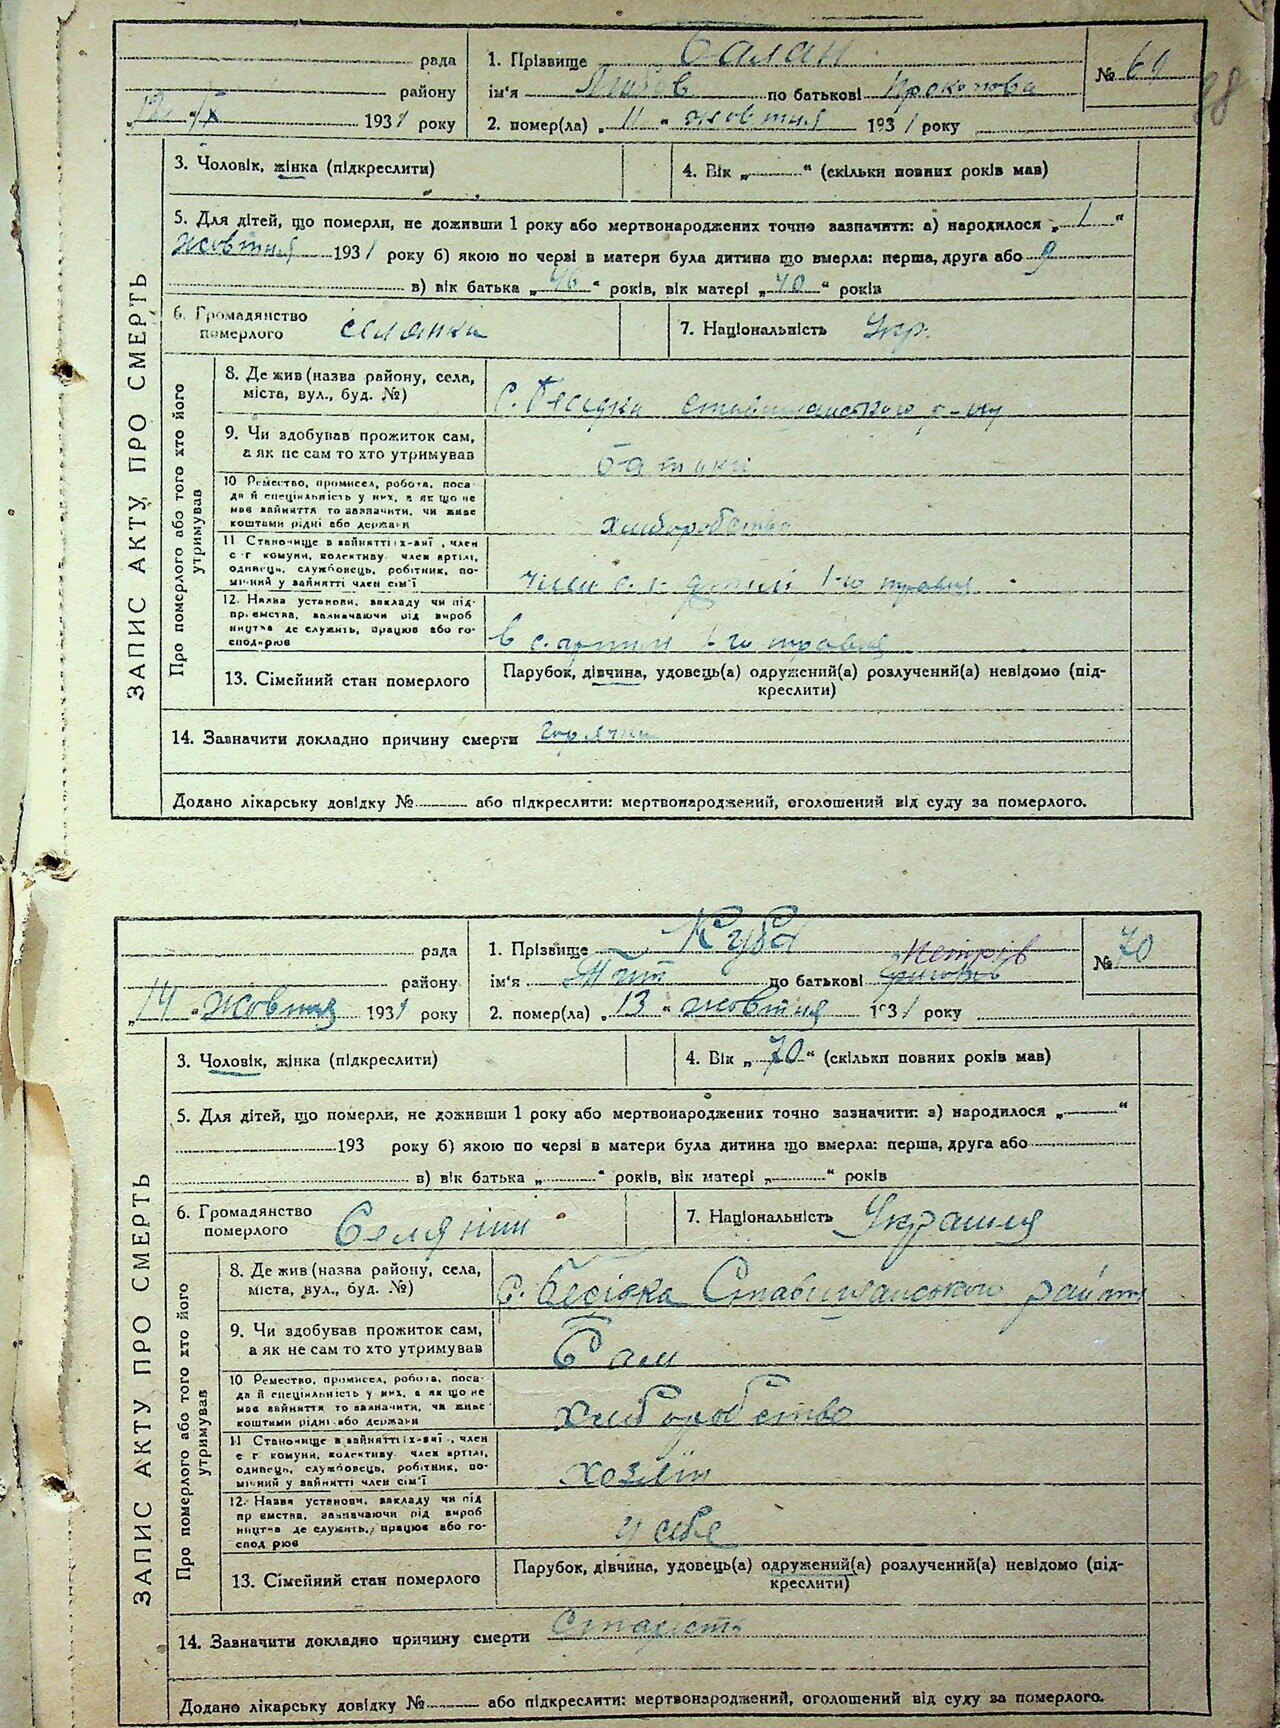 рада
району
„12“ /X 1931 року
1. Прізвище Балан
ім'я по батькові Прокопова
2. помер(ла) „11“ жовтня 1931 року
№ 69
98
ЗАПИС АКТУ ПРО СМЕРТЬ
3. Чоловік, жінка (підкреслити)
4. Вік „ “ (скільки повних років мав)
5. Для дітей, що померли, не доживши 1 року або мертвонароджених точно зазначити: а) народилося „1“
жовтня 1931 року б) якою по черві в матери була дитина що вмерла: перша, друга або 9
в) вік батька „46“ років, вік матері „40“ років
6. Громадянство
померлого селянка
7. Національність Укр.
Про померлого або того хто його
утримував
8. Де жив (назва району, села,
міста, вул., буд. №)
С. Бесідка Ставищанського р-ну
9. Чи здобував прожиток сам,
а як не сам то хто утримував
батьки
10 Ремество, промисел, робота, поса-
да й спеціяльність у них, а як що не
має вайняття то зазначити, чи живе
коштами рідні або держави
хліборобство
11 Становище в вайнятті їх-вяї, член
с г комуни, колективу член артілі,
одинець, службовець, робітник, по-
мічний у вайнятті член сім'ї
член с. г. артілі 1-го травня
12. Назва установи, вакладу чи під-
пр ємства, вазначаючи рід вироб
ництва де служить, працює або го-
сподарює
в с. артілі 1-го травня
13. Сімейний стан померлого
Парубок, дівчина, удовець(а) одружений(а) розлучений(а) невідомо (під-
креслити)
14. Зазначити докладно причину смерти горячка
Додано лікарську довідку № або підкреслити: мертвонароджений, оголошений від суду за померлого.
рада
району
„14“ Жовтня 1931 року
1. Прізвище Куба
Петрів
ім'я Тит по батькові
2. помер(ла) „13“ жовтня 1931 року
№ 70
ЗАПИС АКТУ ПРО СМЕРТЬ
3. Чоловік, жінка (підкреслити)
4. Вік „70“ (скільки повних років мав)
5. Для дітей, що померли, не доживши 1 року або мертвонароджених точно зазначити: а) народилося „ “
193 року б) якою по черзі в матери була дитина що вмерла: перша, друга або
в) вік батька „ “ років, вік матері „ “ років
6. Громадянство
померлого Селянин
7. Національність
Про померлого або того хто його
утримував
8. Де жив (назва району, села,
міста, вул., буд. №)
С. Бесідка Ставищанського району
9. Чи здобував прожиток сам,
а як не сам то хто утримував
Сам
10 Ремество, промисел, робота, поса-
да й спеціяльність у них, а як що не
має вайняття то вазначити, чи живе
коштами рідні або держави
хліборобство
11 Становище в вайнятті їх-вяї, член
с г комуни, колективу член артілі,
одинець, службовець, робітник, по-
мічний у вайнятті член сім'ї
хозяїн
12. Назва установи, вакладу чи під
пр ємства, вазначаючи рід вироб
ництва де служить, працює або го-
спод рює
у себе
13. Сімейний стан померлого
Парубок, дівчина, удовець(а) одружений(а) розлучений(а) невідомо (під-
креслити)
14. Зазначити докладно причину смерти Старість
Додано лікарську довідку № або підкреслити: мертвонароджений, оголошений від суду за померлого.